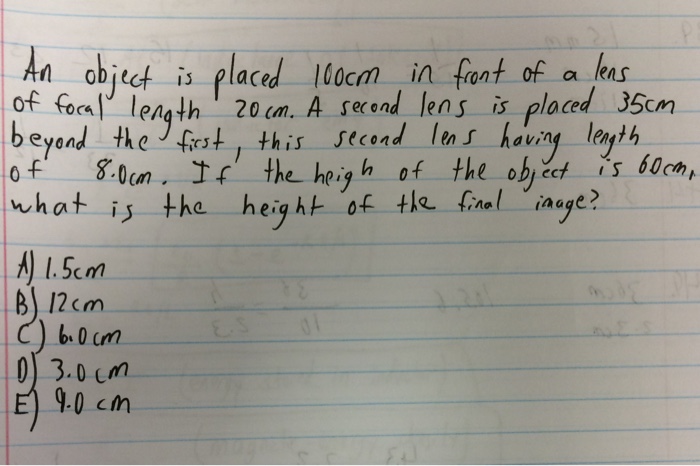 An object is placed 100cm in front of a lens
of focal length 20cm. A second lens is placed 35cm
beyond the first, this second lens having length
of 8.0cm. If the heigh of the object is 60cm,
what is the height of the final image?
A) 1.5cm
B) 12cm
C) 6.0cm
D) 3.0cm
E) 9.0 cm